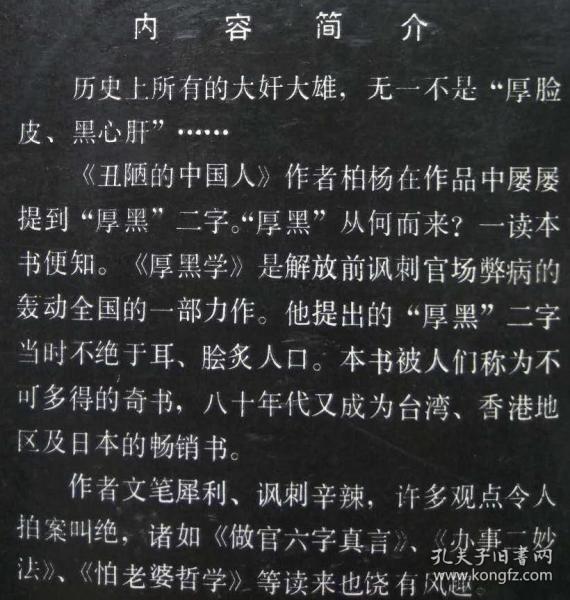 内容简介
历史上所有的大奸大雄，无一不是“厚脸
皮、黑心肝”……
《丑陋的中国人》作者柏杨在作品中屡屡
提到“厚黑”二字。“厚黑”从何而来？一读本
书便知。《厚黑学》是解放前讽刺官场弊病的
轰动全国的一部力作。他提出的“厚黑”二字
当时不绝于耳、脍炙人口。本书被人们称为不
可多得的奇书，八十年代又成为台湾、香港地
区及日本的畅销书。
作者文笔犀利、讽刺辛辣，许多观点令人
拍案叫绝，诸如《做官六字真言》、《办事二妙
法》、《怕老婆哲学》等读来也饶有风趣。
孔夫子旧书网
www.kongfz.com